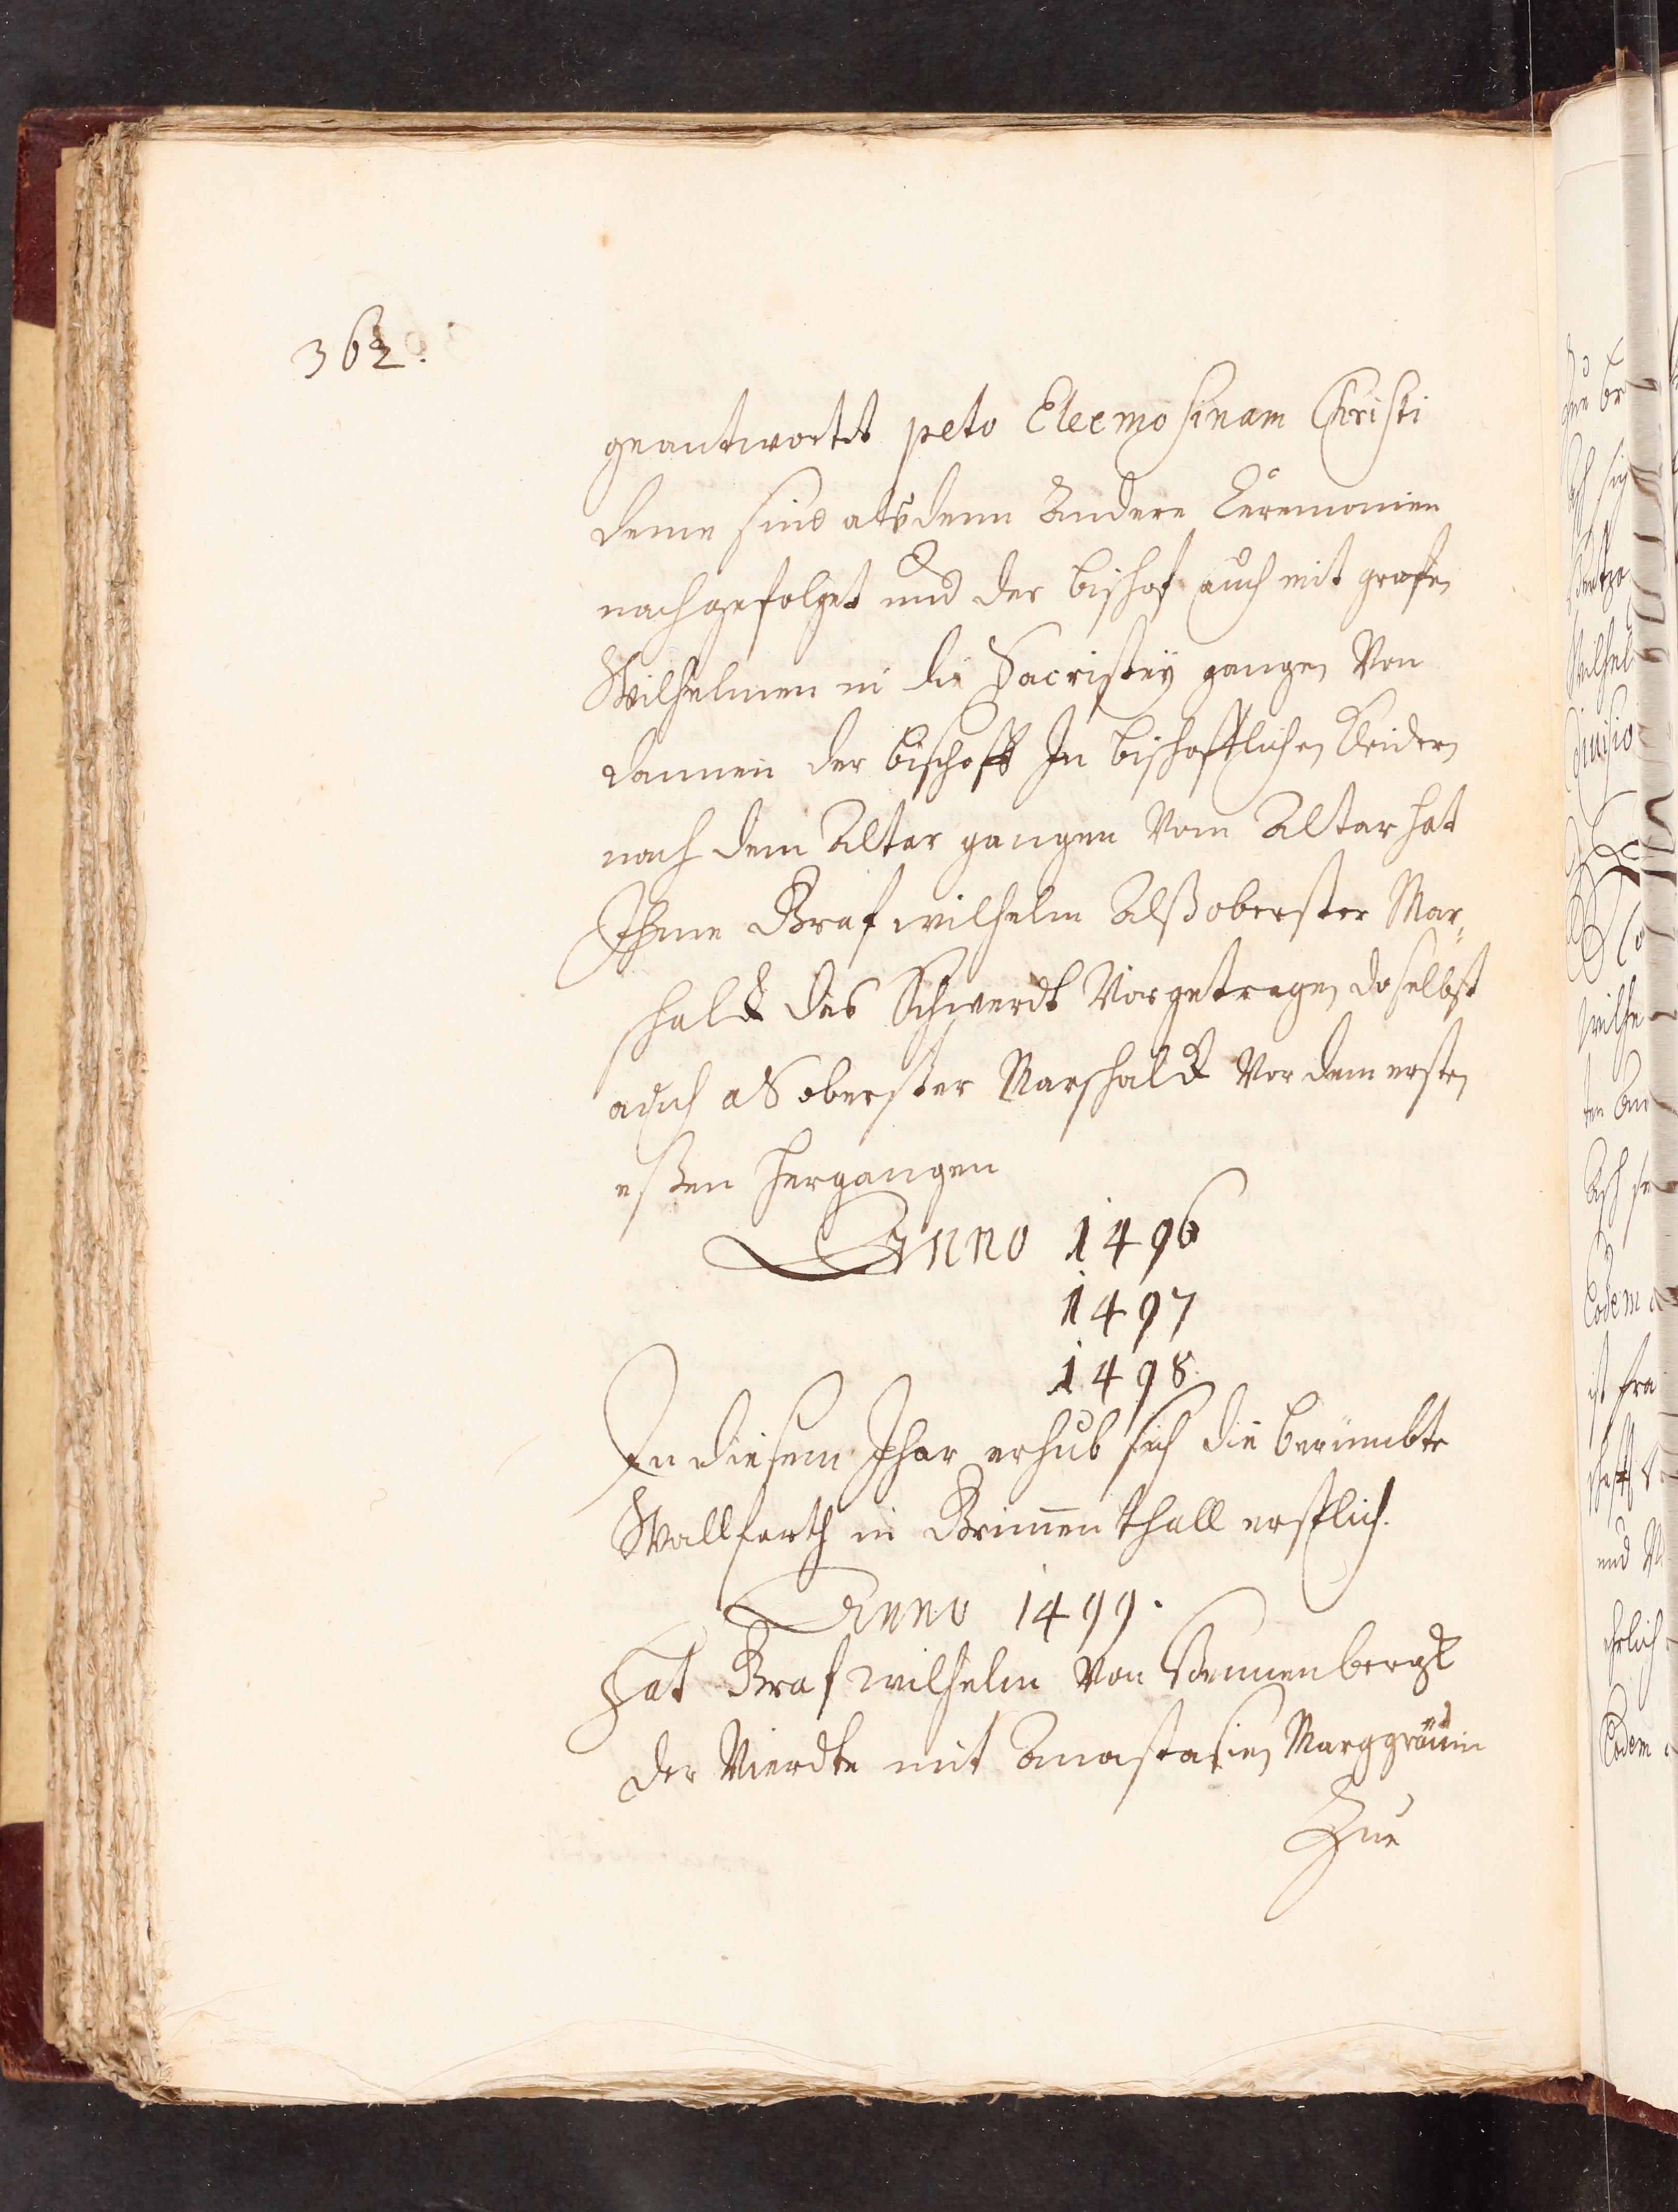 362.
geantwortt peto Eleemosinam Christi
deme sind alsdenn Andere Ceremonien
nachgefolget und der bischof auch mit grafen
Wilhelmen in die Sacristey gangen Von
dannen der bischoff In bischofflichen Kleidern
nach dem Altar gangen Vom Altar hat
Ihme Graf wilhelm Alß oberster Mar„
shalck das Schwerdt Vorgetragen doselbst
auch als oberster Marshalck Vor dem ersten
eßen hergangen
Anno 1496
1497
1498.
In diesem Ihar erhub sich die berümbte
Wallfarth in Grimmenthall erstlich.
Anno 1499.
Hat Graf wilhelm Von Hennenbergk
der Vierdte mit Anastasien Marggräuin
Zue